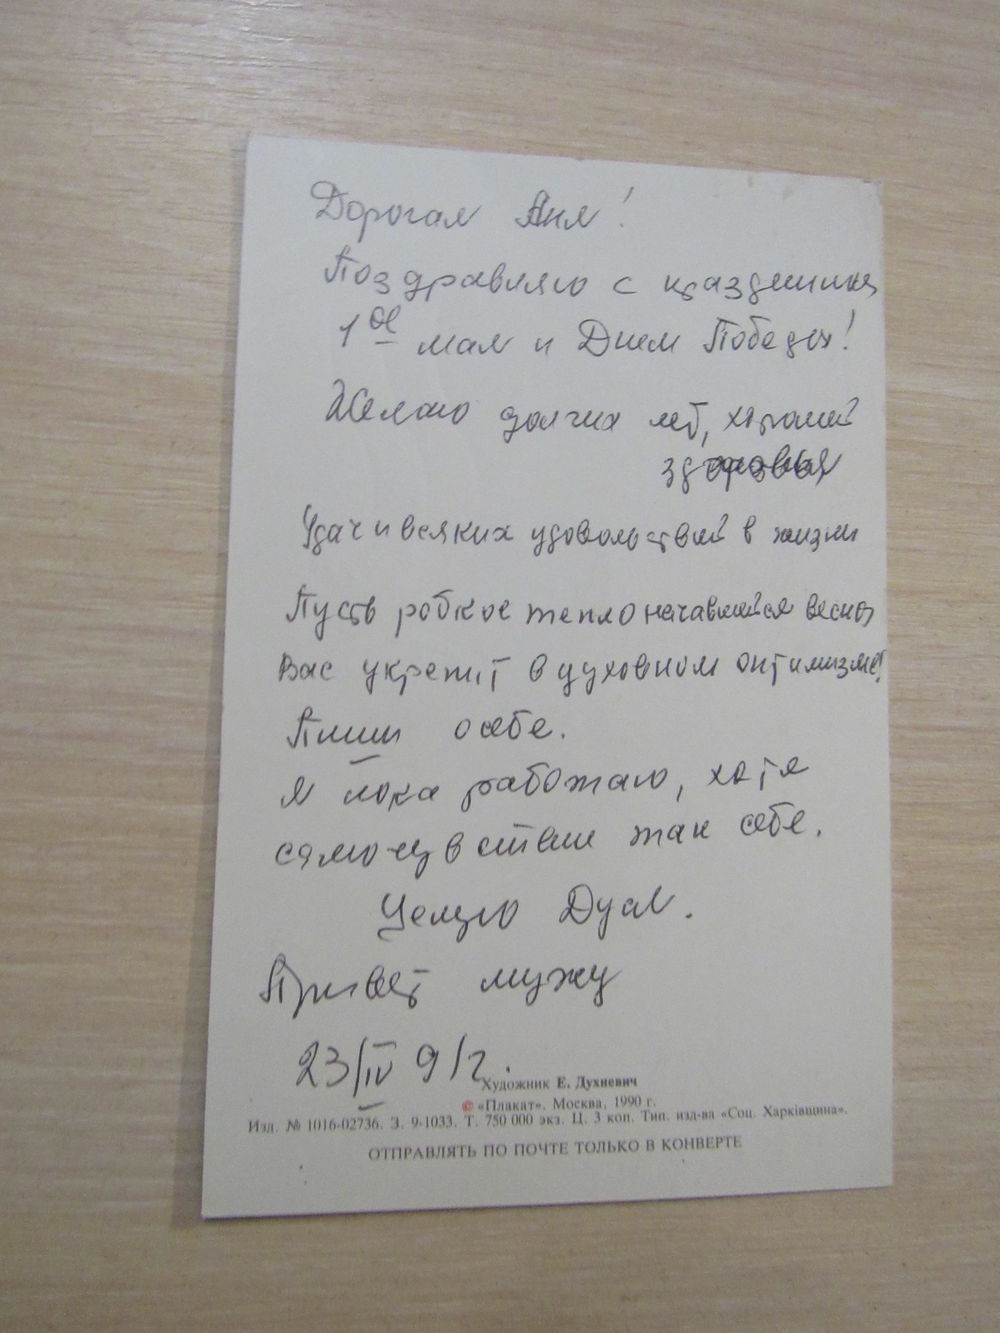 Дорогая Аня!
Поздравляю с праздником
1ое мая и Днем Победы!
Желаю долгих лет, хорошей
здоровья
Удач и всяких удовольствий в жизни
Пусть робкое тепло начавшейся весны
Вас укрепит в духовном оптимизме!
Пиши о себе.
Я пока работаю, хотя
самочувствие так себе.
Целую Дуся.
Привет мужу
23/IV 91г.
Художник Е. Духневич
© «Плакат». Москва, 1990 г.
Изд. № 1016-02736. З. 9-1033. Т. 750 000 экз. Ц. 3 коп. Тип. изд-ва «Соц. Харкiвщина».
ОТПРАВЛЯТЬ ПО ПОЧТЕ ТОЛЬКО В КОНВЕРТЕ